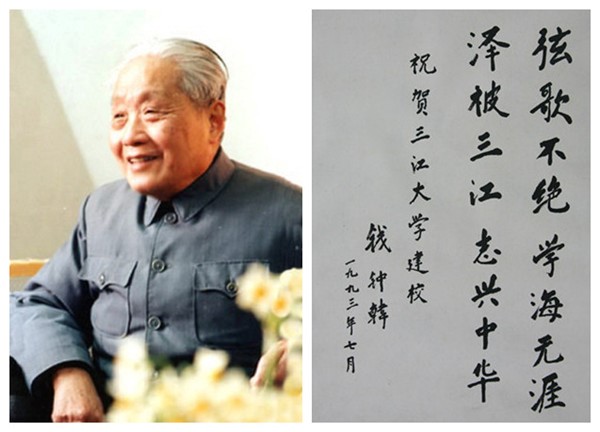 弦歌不绝 学海无涯
泽被三江 志兴中华
祝贺三江大学建校
钱钟韩
一九九三年七月